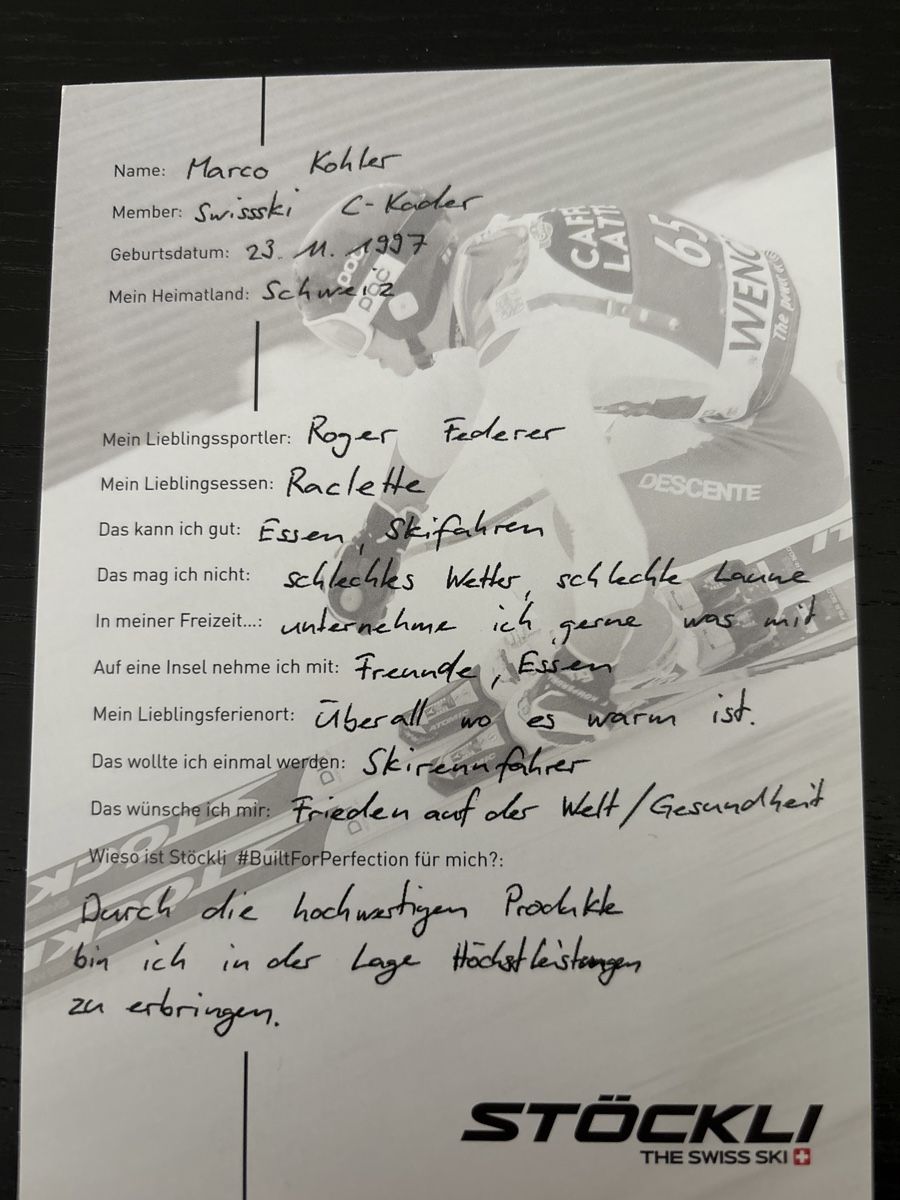 Name: Marco Kohler
Member: Swissski C-Kader
Geburtsdatum: 23. 11. 1997
Mein Heimatland: Schweiz
Mein Lieblingssportler: Roger Federer
Mein Lieblingsessen: Raclette
Das kann ich gut: Essen, Skifahren
Das mag ich nicht: schlechtes Wetter, schlechte Laune
In meiner Freizeit...: unternehme ich gerne was mit
Auf eine Insel nehme ich mit: Freunde, Essen
Mein Lieblingsferienort: Überall wo es warm ist.
Das wollte ich einmal werden: Skirennfahrer
Das wünsche ich mir: Frieden auf der Welt/Gesundheit
Wieso ist Stöckli #BuiltForPerfection für mich?:
Durch die hochwertigen Produkte
bin ich in der Lage Höchstleistungen
zu erbringen.
STÖCKLI
THE SWISS SKI
CAFF
LATT
65
WENG
The power
POC
POC
DESCENTE
ATOMIC
STÖCK
STÖCKL